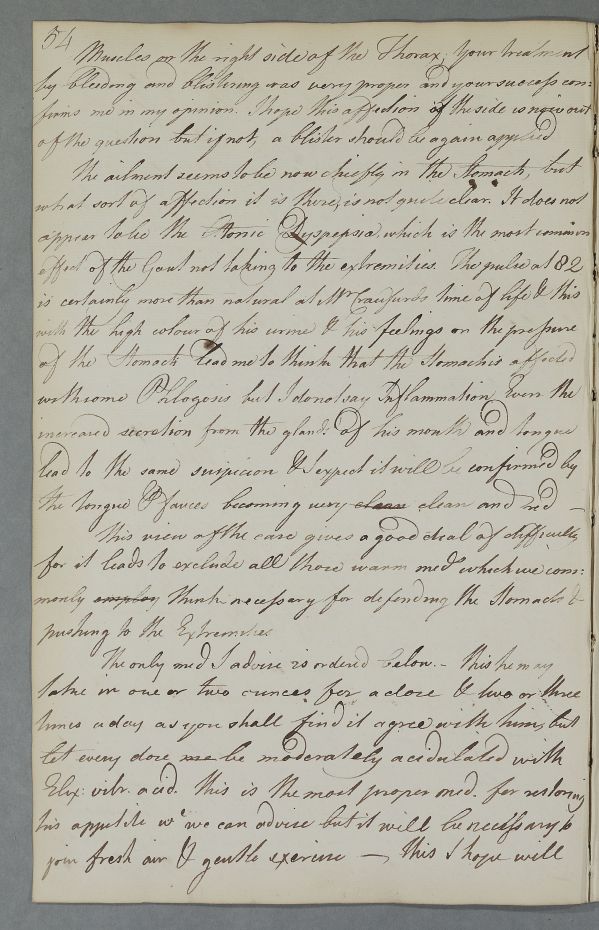 54
Muscles on the right side of the Thorax; Your treatment
by bleeding and blistering was very proper and your success con:
firms me in my opinion. I hope this affection of the side is now out
of the question but if not, a blister should be again applied
The ailment seems to be now chiefly in the Stomach, but
what sort of affection it is there, is not quite clear. It does not
appear to be the Atonic Dyspepsia, which is the most common
effect of the Gout not taking to the extremities. The pulse at 82
is certainly more than natural at Mr Craufurds time of life & this
with the high colour of his urine & his feelings on the pressure
of the Stomach lead me to think that the Stomach is affected
with some Phlogosis but I do not say Inflammation. Even the
increased secretion from the glands of his mouth and tongue
lead to the same suspicion & I expect it will be confirmed by
the tongue & fauces becoming very clean clean and red —
This view of the case gives a good deal of difficulty
for it leads to exclude all those warm med. which we com:
monly employ think necessary for defending the Stomach &
pushing to the Extremities
The only med. I advise is ordered below. — this he may
take in one or two ounces for a dose & two or three
times a day as you shall find it agree with him, but
let every dose be moderately acidulated with
Elix: vitr. acid. this is the most proper med. for restoring
his appetite wc we can advise but it will be necessary to
join fresh air & gentle exercise —, This I hope will